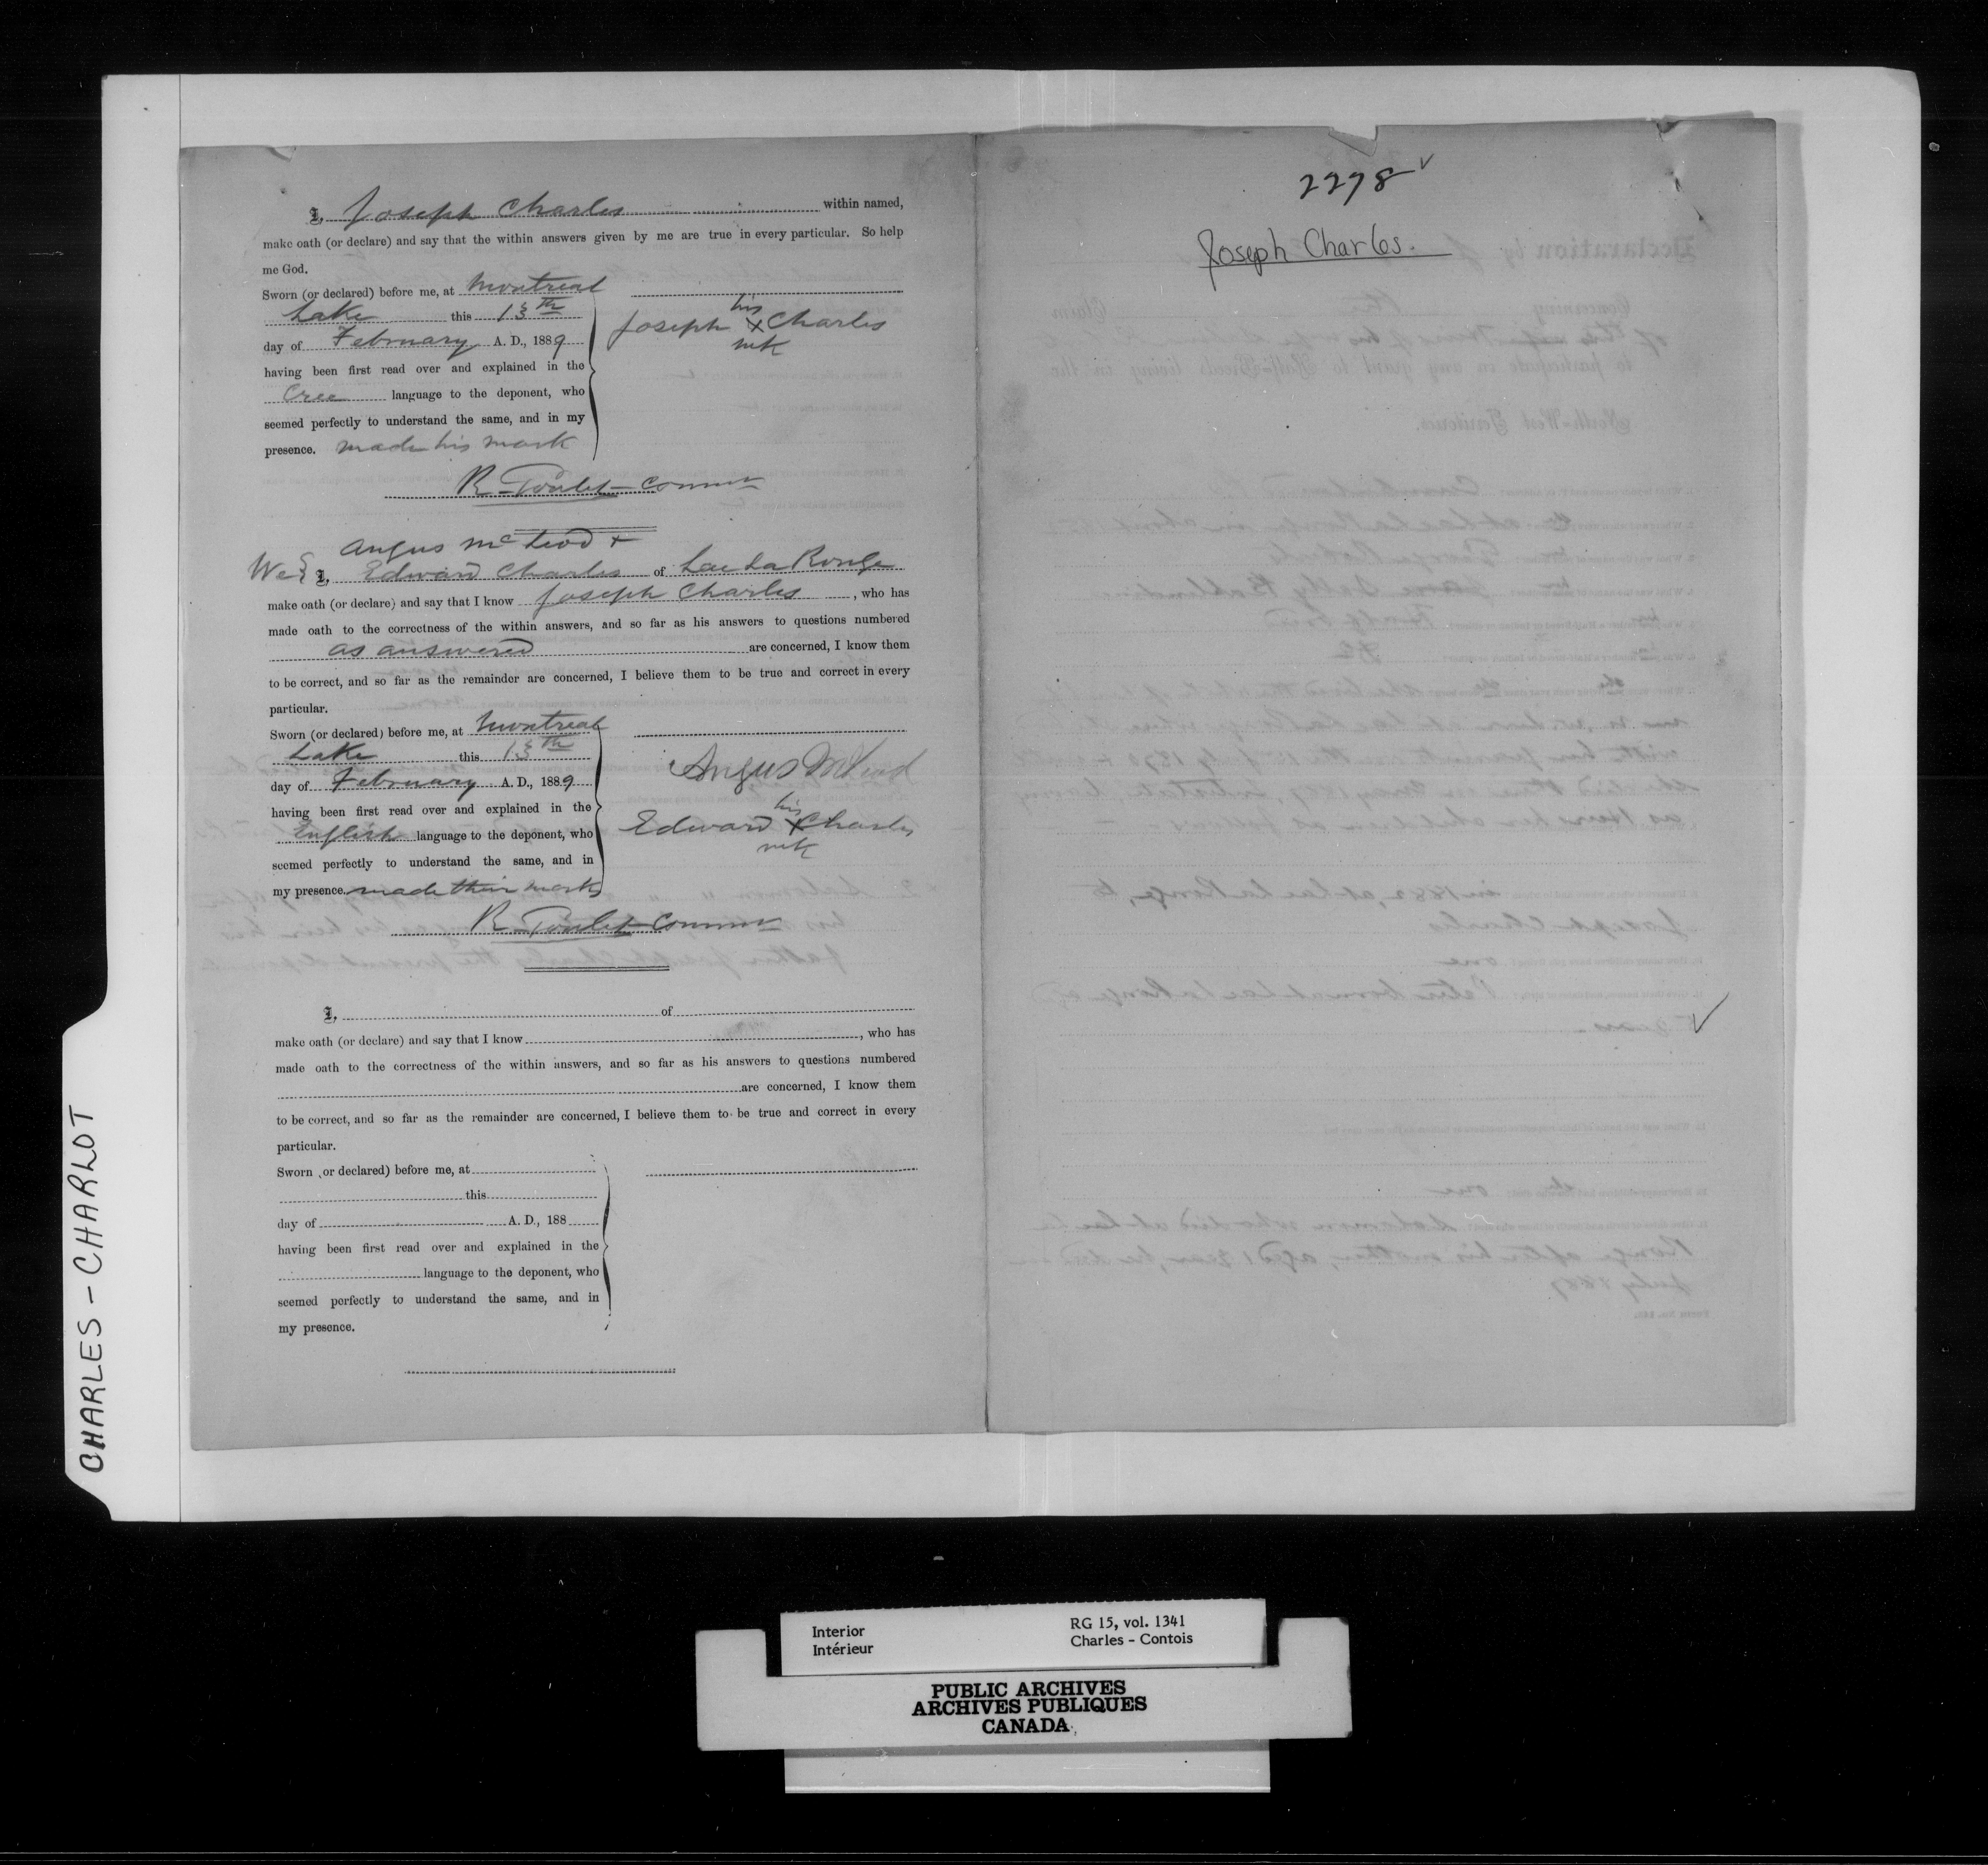 I, Joseph Charles within named,
make oath (or declare) and say that the within answers given by me are true in every particular. So help
me God.
Sworn (or declared) before me, at Montreal
Lake this 13th
day of February A. D., 1889
having been first read over and explained in the
Cree language to the deponent, who
seemed perfectly to understand the same, and in my
presence. made his mark
his
Joseph x Charles
mk
R. Goulet Commr
Angus McLeod +
We I, Edward Charles of Lac La Ronge
make oath (or declare) and say that I know Joseph Charles, who has
made oath to the correctness of the within answers, and so far as his answers to questions numbered
as answered are concerned, I know them
to be correct, and so far as the remainder are concerned, I believe them to be true and correct in every
particular.
Sworn (or declared) before me, at Montreal
Lake this 13th
day of February A. D., 1889
having been first read over and explained in the
English language to the deponent, who
seemed perfectly to understand the same, and in
my presence. made their marks
Angus McLeod
his
Edward x Charles
mk
R. Goulet Commr
I, of
make oath (or declare) and say that I know , who has
made oath to the correctness of the within answers, and so far as his answers to questions numbered
are concerned, I know them
to be correct, and so far as the remainder are concerned, I believe them to be true and correct in every
particular.
Sworn (or declared) before me, at
this
day of A. D., 188
having been first read over and explained in the
language to the deponent, who
seemed perfectly to understand the same, and in
my presence.
2278
Joseph Charles.
CHARLES - CHARLOT
Interior
Intérieur
RG 15, vol. 1341
Charles - Contois
PUBLIC ARCHIVES
ARCHIVES PUBLIQUES
CANADA